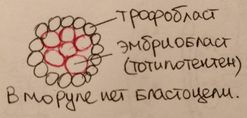 трофобласт
эмбриобласт
(тотипотентен)
В моруле нет бластоцели.